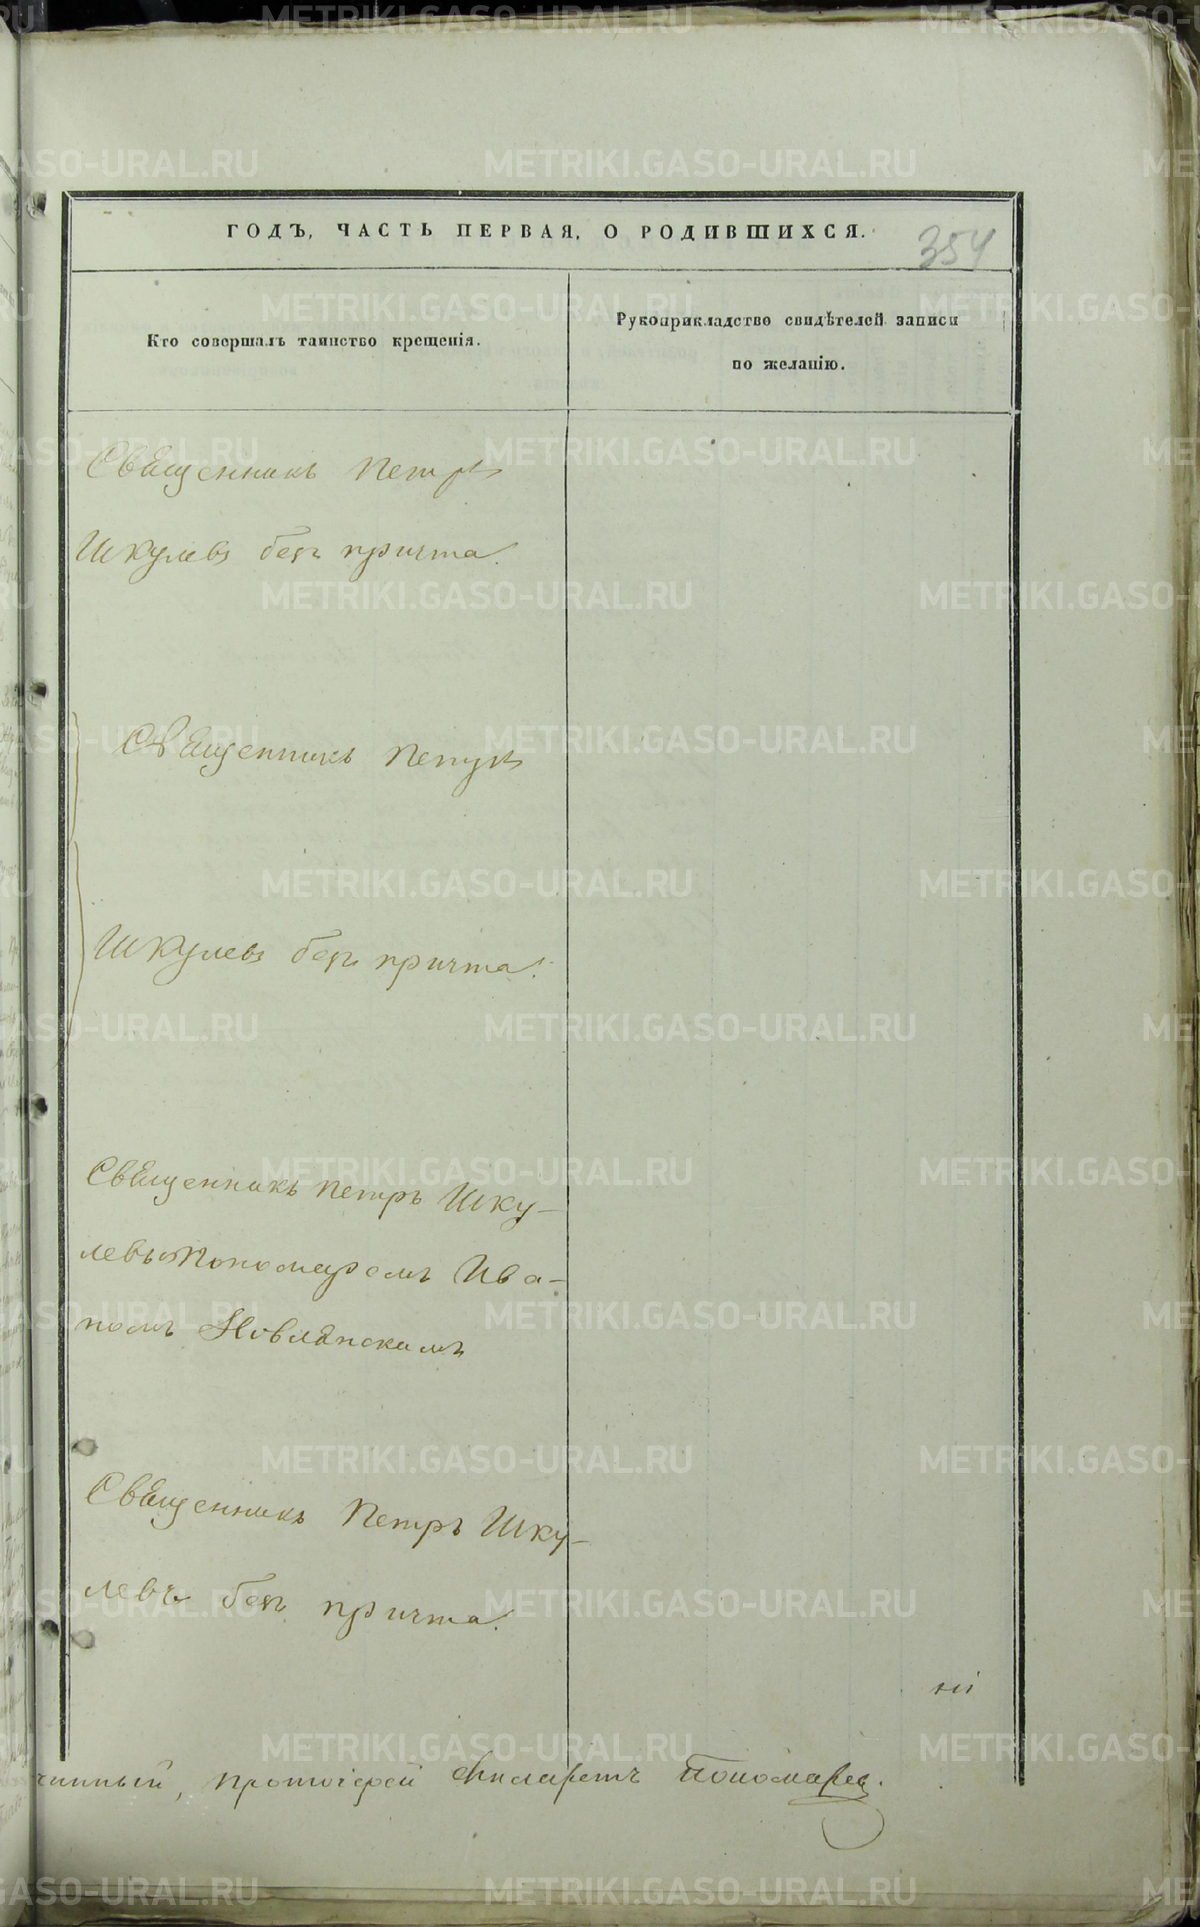 ГОДЪ, ЧАСТЬ ПЕРВАЯ, О РОДИВШИХСЯ.
354
Кто совершалъ таинство крещенія.
Рукоприкладство свидѣтелей записи
по желанію.
Священникъ Петръ
Шкулевъ безъ причта.
Священникъ Петръ
Шкулевъ безъ причта.
Священникъ Петръ Шку-
левъ съ Пономаремъ Ива-
номъ
Священникъ Петръ Шку-
левъ безъ причта.
чинный, протоіерей Филаретъ Пономаревъ.
METRIKI.GASO-URAL.RU